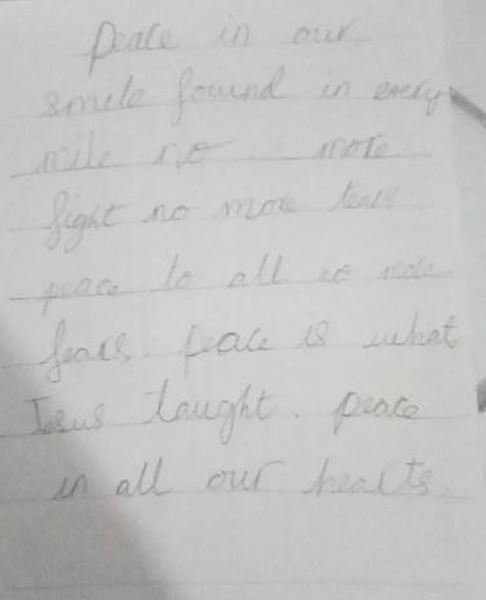 Peace in our
smile found in every
mile no more
fight no more tears
peace to all no more
fears. peace is what
Jesus taught. peace
in all our hearts.